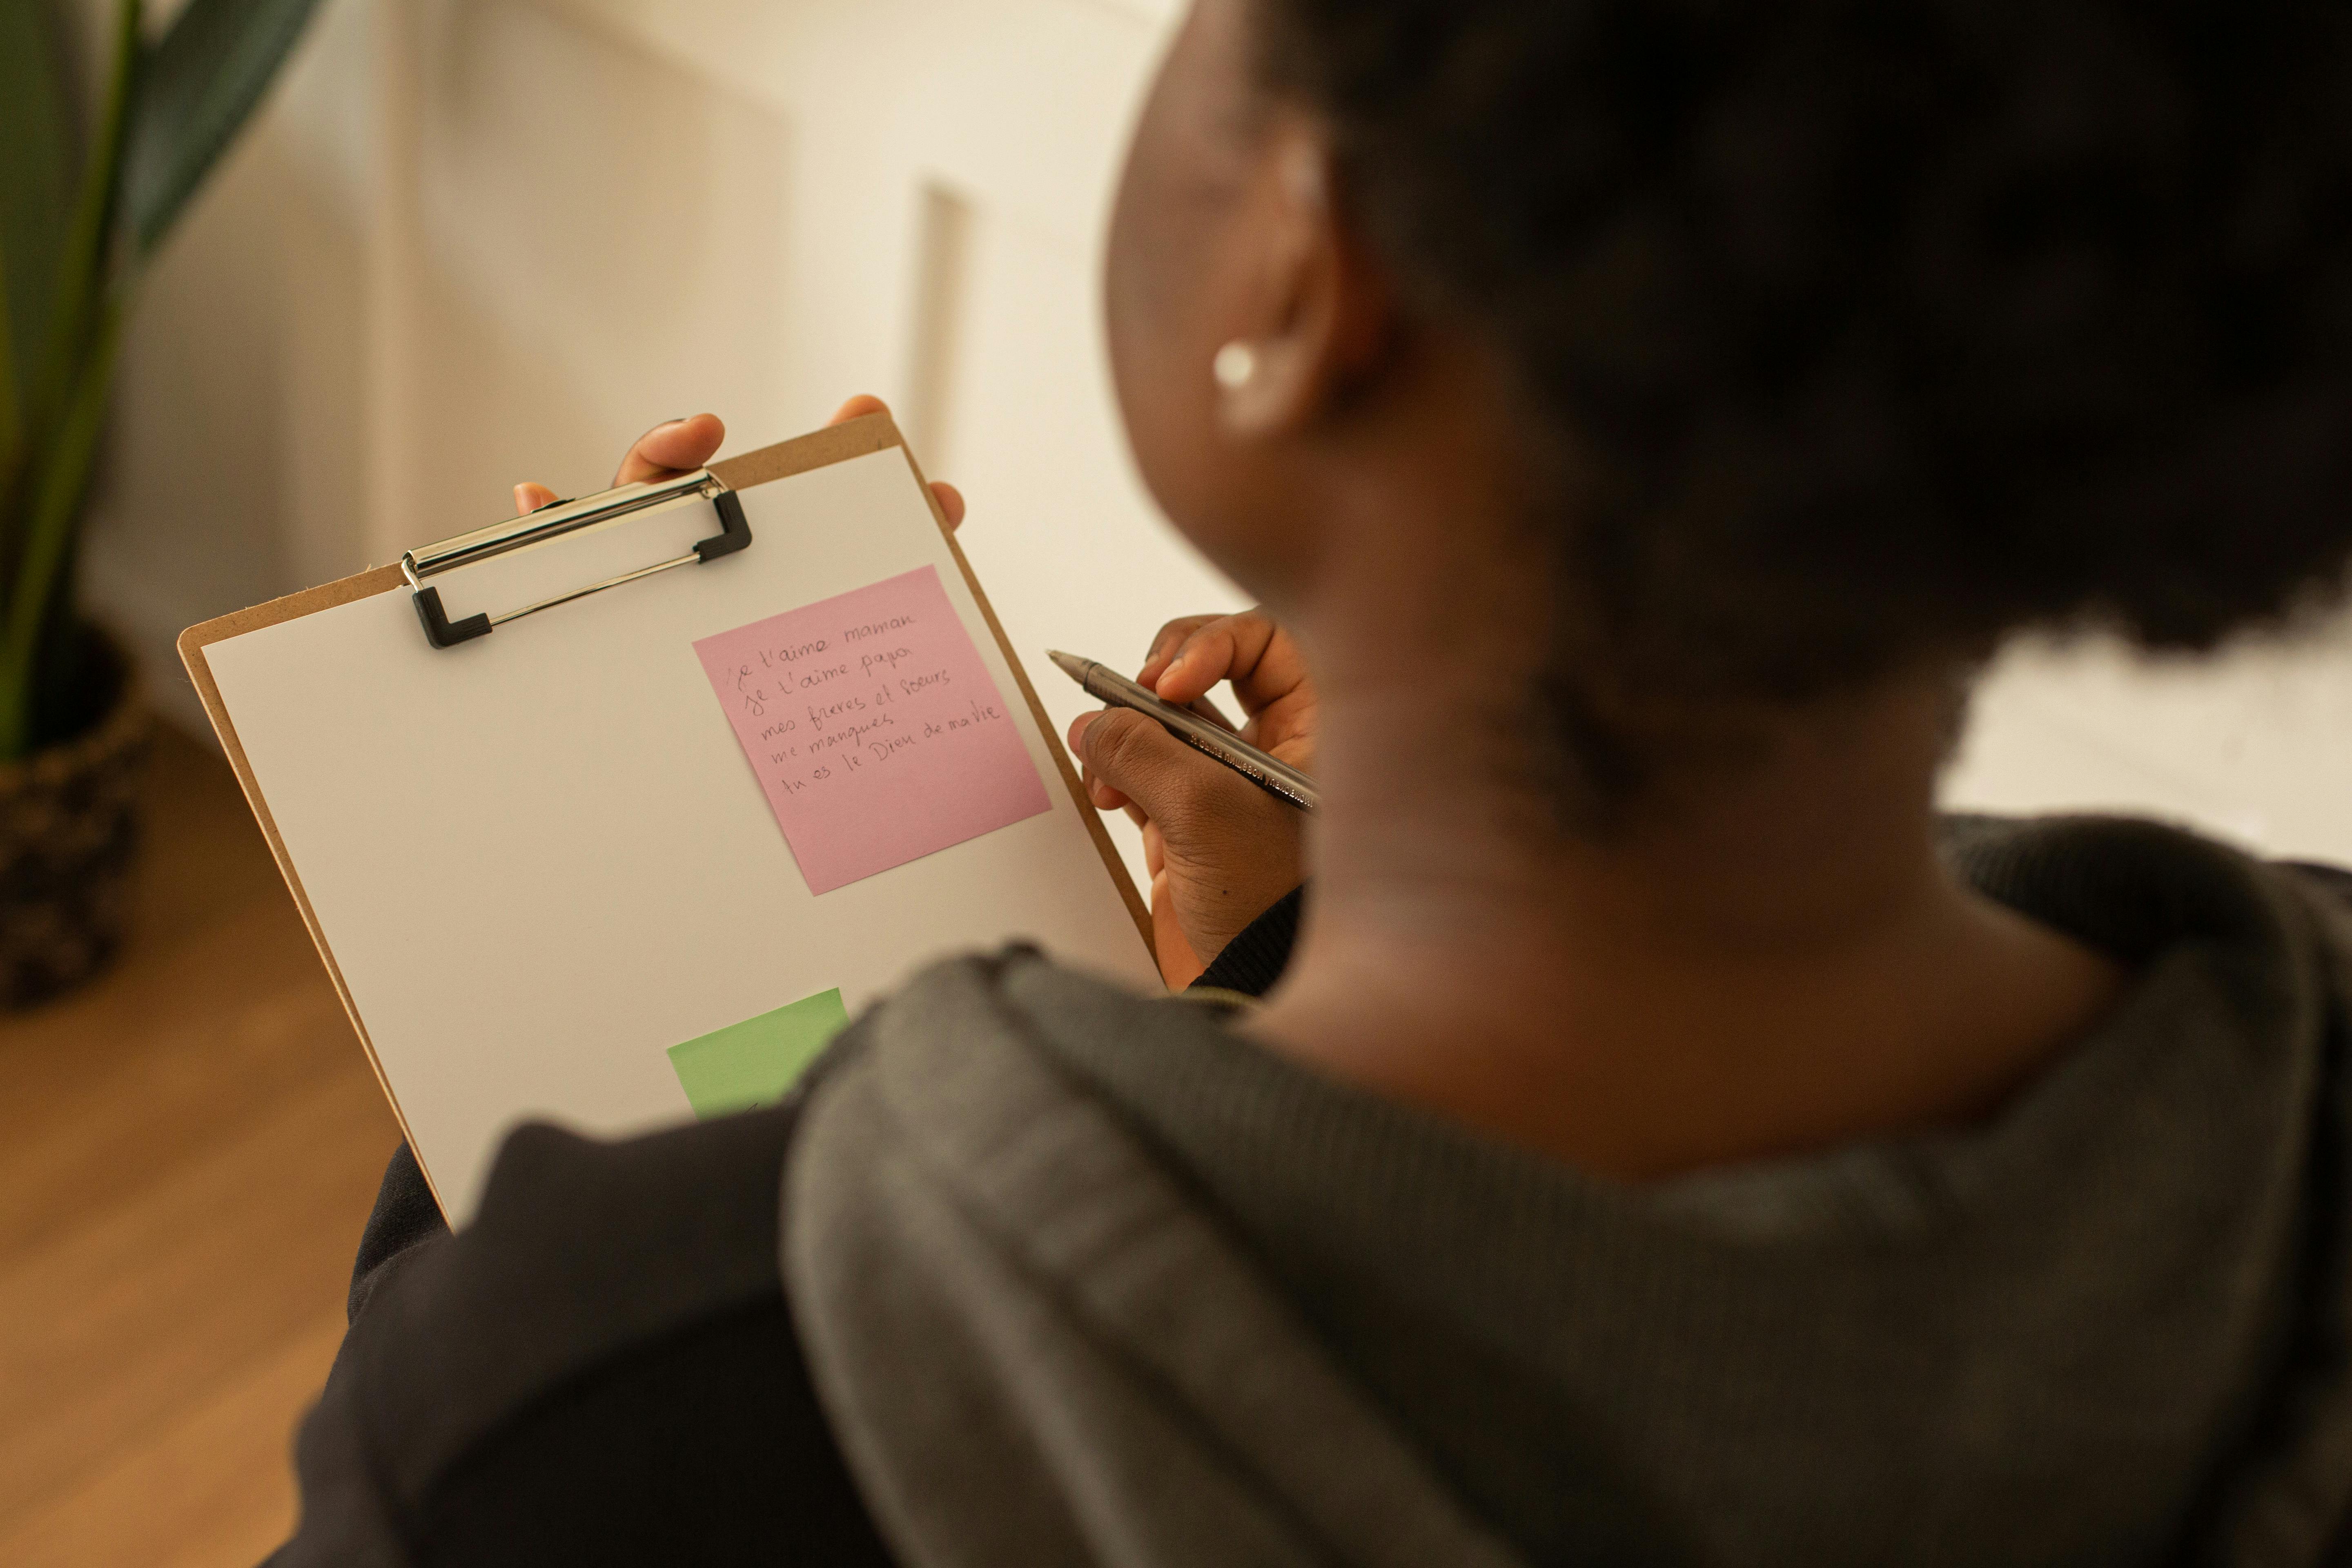 je t'aime maman
je t'aime papa
mes freres et soeurs
me manques
tu es le Dieu de ma vie